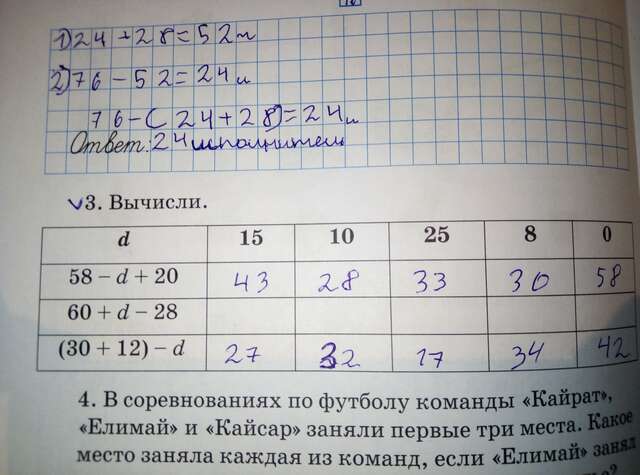 1) 24 + 28 = 52 и
2) 76 – 52 = 24 и
76 – ( 24 + 28 ) = 24 и
Ответ: 24 исполнители
3. Вычисли.
d 15 10 25 8 0
58 – d + 20 43 28 33 30 58
60 + d – 28
(30 + 12) – d 27 32 17 34 42
4. В соревнованиях по футболу команды «Кайрат»,
«Елимай» и «Кайсар» заняли первые три места. Какое
место заняла каждая из команд, если «Елимай» занял